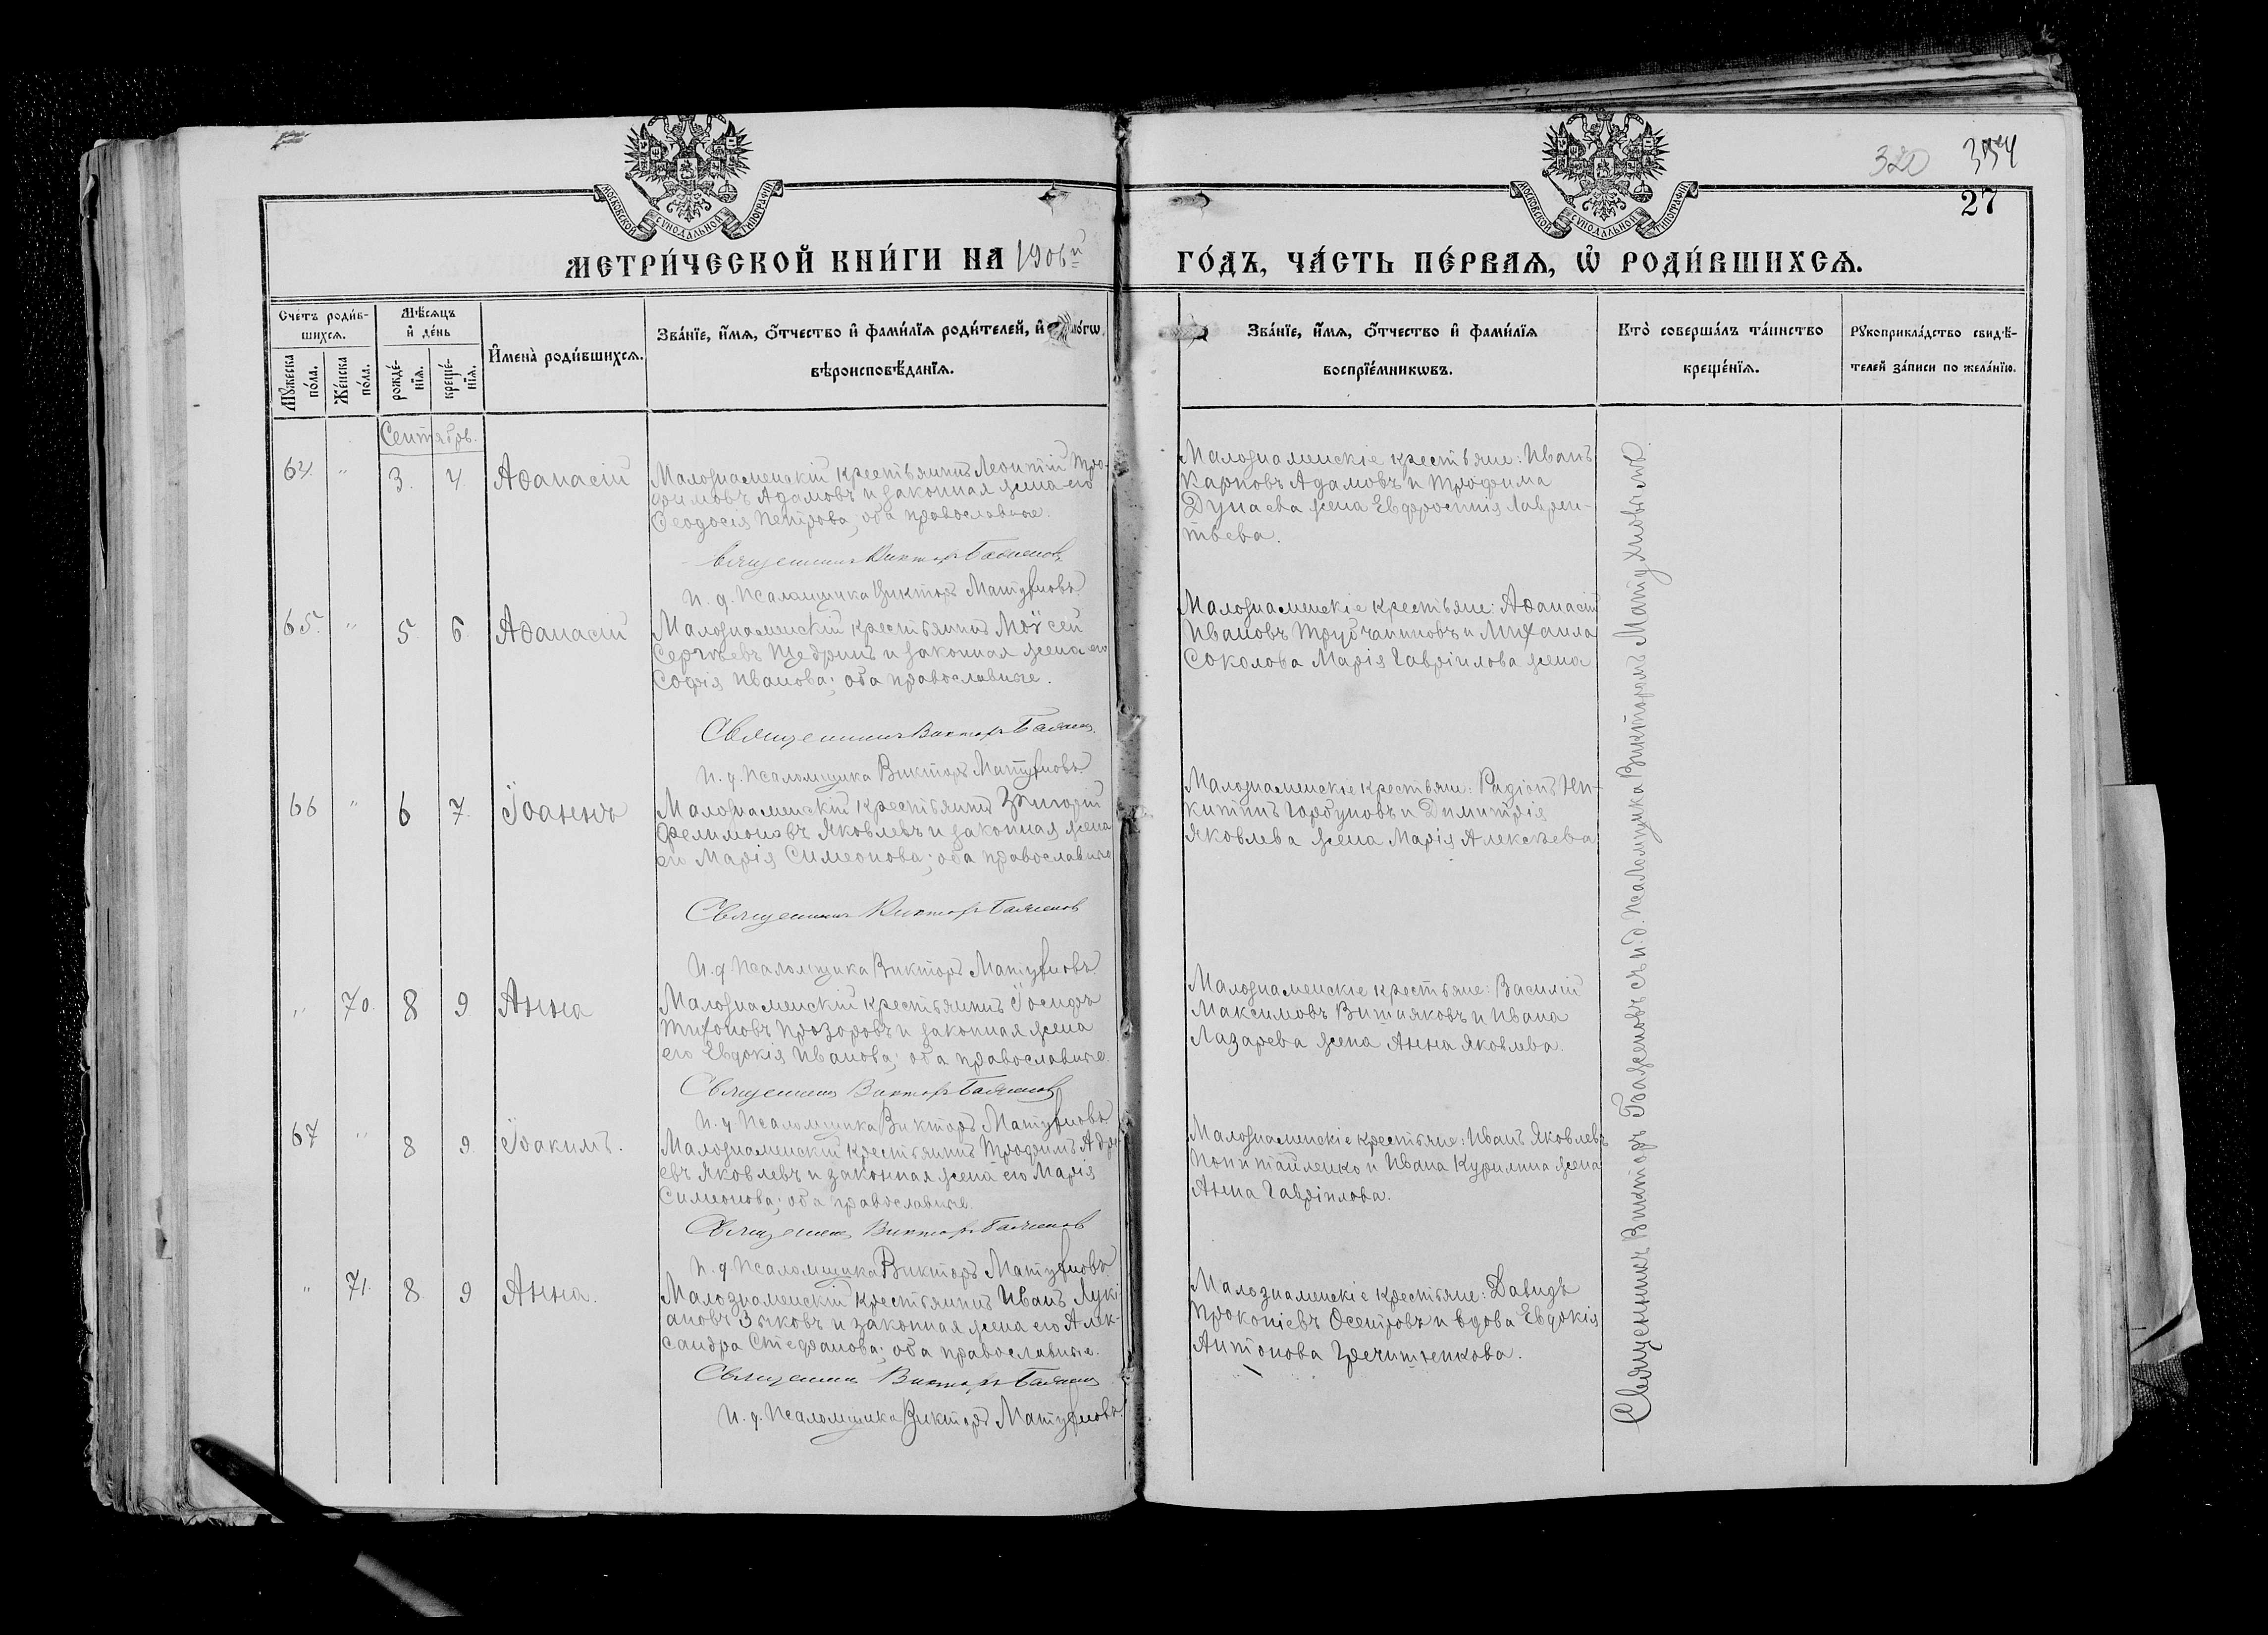 320 354
27
МОСКОВСКОЙ СѴНОДАЛЬНОЙ ТИПОГРАФІИ
МОСКОВСКОЙ СѴНОДАЛЬНОЙ ТИПОГРАФІИ
МЕТРИ́ЧЕСКОЙ КНИ́ГИ НА 1906й ГО́ДЪ, ЧА́СТЬ ПЕ́РВАЯ, Ѡ҆ РОДИ́ВШИХСЯ.
Счетъ роди́в-
шихся.
Мꙋ́жеска по́ла.
Же́нска по́ла.
Мѣ́сяцъ
и҆ де́нь
рожде́-
нїя.
креще́-
нїя.
И҆мена̀ роди́вшихся.
Зва́нїе, и҆́мя, ѻ҆́тчество и҆ фами́лїя роди́телей, и҆
вѣроисповѣ́данїя.
Зва́нїе, и҆́мя, ѻ҆́тчество и҆ фами́лїя
воспрїе́мникѡвъ.
Кто̀ соверша́лъ та́инство
креще́нїя.
Рꙋкоприкла́дство свидѣ́-
телей за́писи по жела́нїю.
Сентябрь.
64. " 3. 4. Аѳанасій
Малознаменскій крестьянинъ Леонтій Тро-
фимовъ Адамовъ и законная жена его
Ѳеодосія Петрова; оба православные.
Священникъ Викторъ Баженовъ
И. д. Псаломщика Викторъ Матухновъ
Малознаменскіе крестьяне: Иванъ
Карповъ Адамовъ и Трофима
Дунаева жена Евфросинія Лаврен-
тьева.
65. " 5. 6. Аѳанасій
Малознаменскій крестьянинъ Моѵсей
Сергѣевъ Щедринъ и законная жена его
Софія Иванова; оба православные.
Священникъ Викторъ Баженовъ
И. д. Псаломщика Викторъ Матухновъ
Малознаменскіе крестьяне: Аѳанасій
Ивановъ Трубчаниновъ и Михаила
Соколова Марія Гавріилова жена
66 " 6 7. Іоаннъ
Малознаменскій крестьянинъ Григорій
Филимоновъ Яковлевъ и законная жена
его Марія Симеонова; оба православные
Священникъ Викторъ Баженовъ
И. д. Псаломщика Викторъ Матухновъ
Малознаменскіе крестьяне: Радіонъ Ни-
китинъ Горбуновъ и Димитрія
Яковлева жена Марія Алексѣева
" 70. 8 9 Анна
Малознаменскій крестьянинъ Іосифъ
Тихоновъ Прозоровъ и законная жена
его Евдокія Иванова; оба православные.
Священникъ Викторъ Баженовъ
И. д. Псаломщика Викторъ Матухновъ
Малознаменскіе крестьяне: Василій
Максимовъ Витняковъ и Ивана
Лазарева жена Анна Яковлева.
67 " 8 9 Іоакимъ.
Малознаменскій крестьянинъ Трофимъ
евъ Яковлевъ и законная жена его Марія
Симеонова; оба православные.
Священникъ Викторъ Баженовъ
И. д. Псаломщика Викторъ Матухновъ
Малознаменскіе крестьяне: Иванъ Яковлевъ
и Ивана Курилина жена
Анна Гавріилова.
" 71. 8. 9 Анна.
Малознаменскій крестьянинъ Иванъ Луки-
ановъ Зыковъ и законная жена его Алек-
сандра Стефанова; оба православные.
Священникъ Викторъ Баженовъ
И. д. Псаломщика Викторъ Матухновъ
Малознаменскіе крестьяне: Давидъ
Прокопіевъ Осетровъ и вдова Евдокія
Антонова
Священникъ Викторъ Баженовъ съ и. д. Псаломщика Викторомъ Матухновымъ.